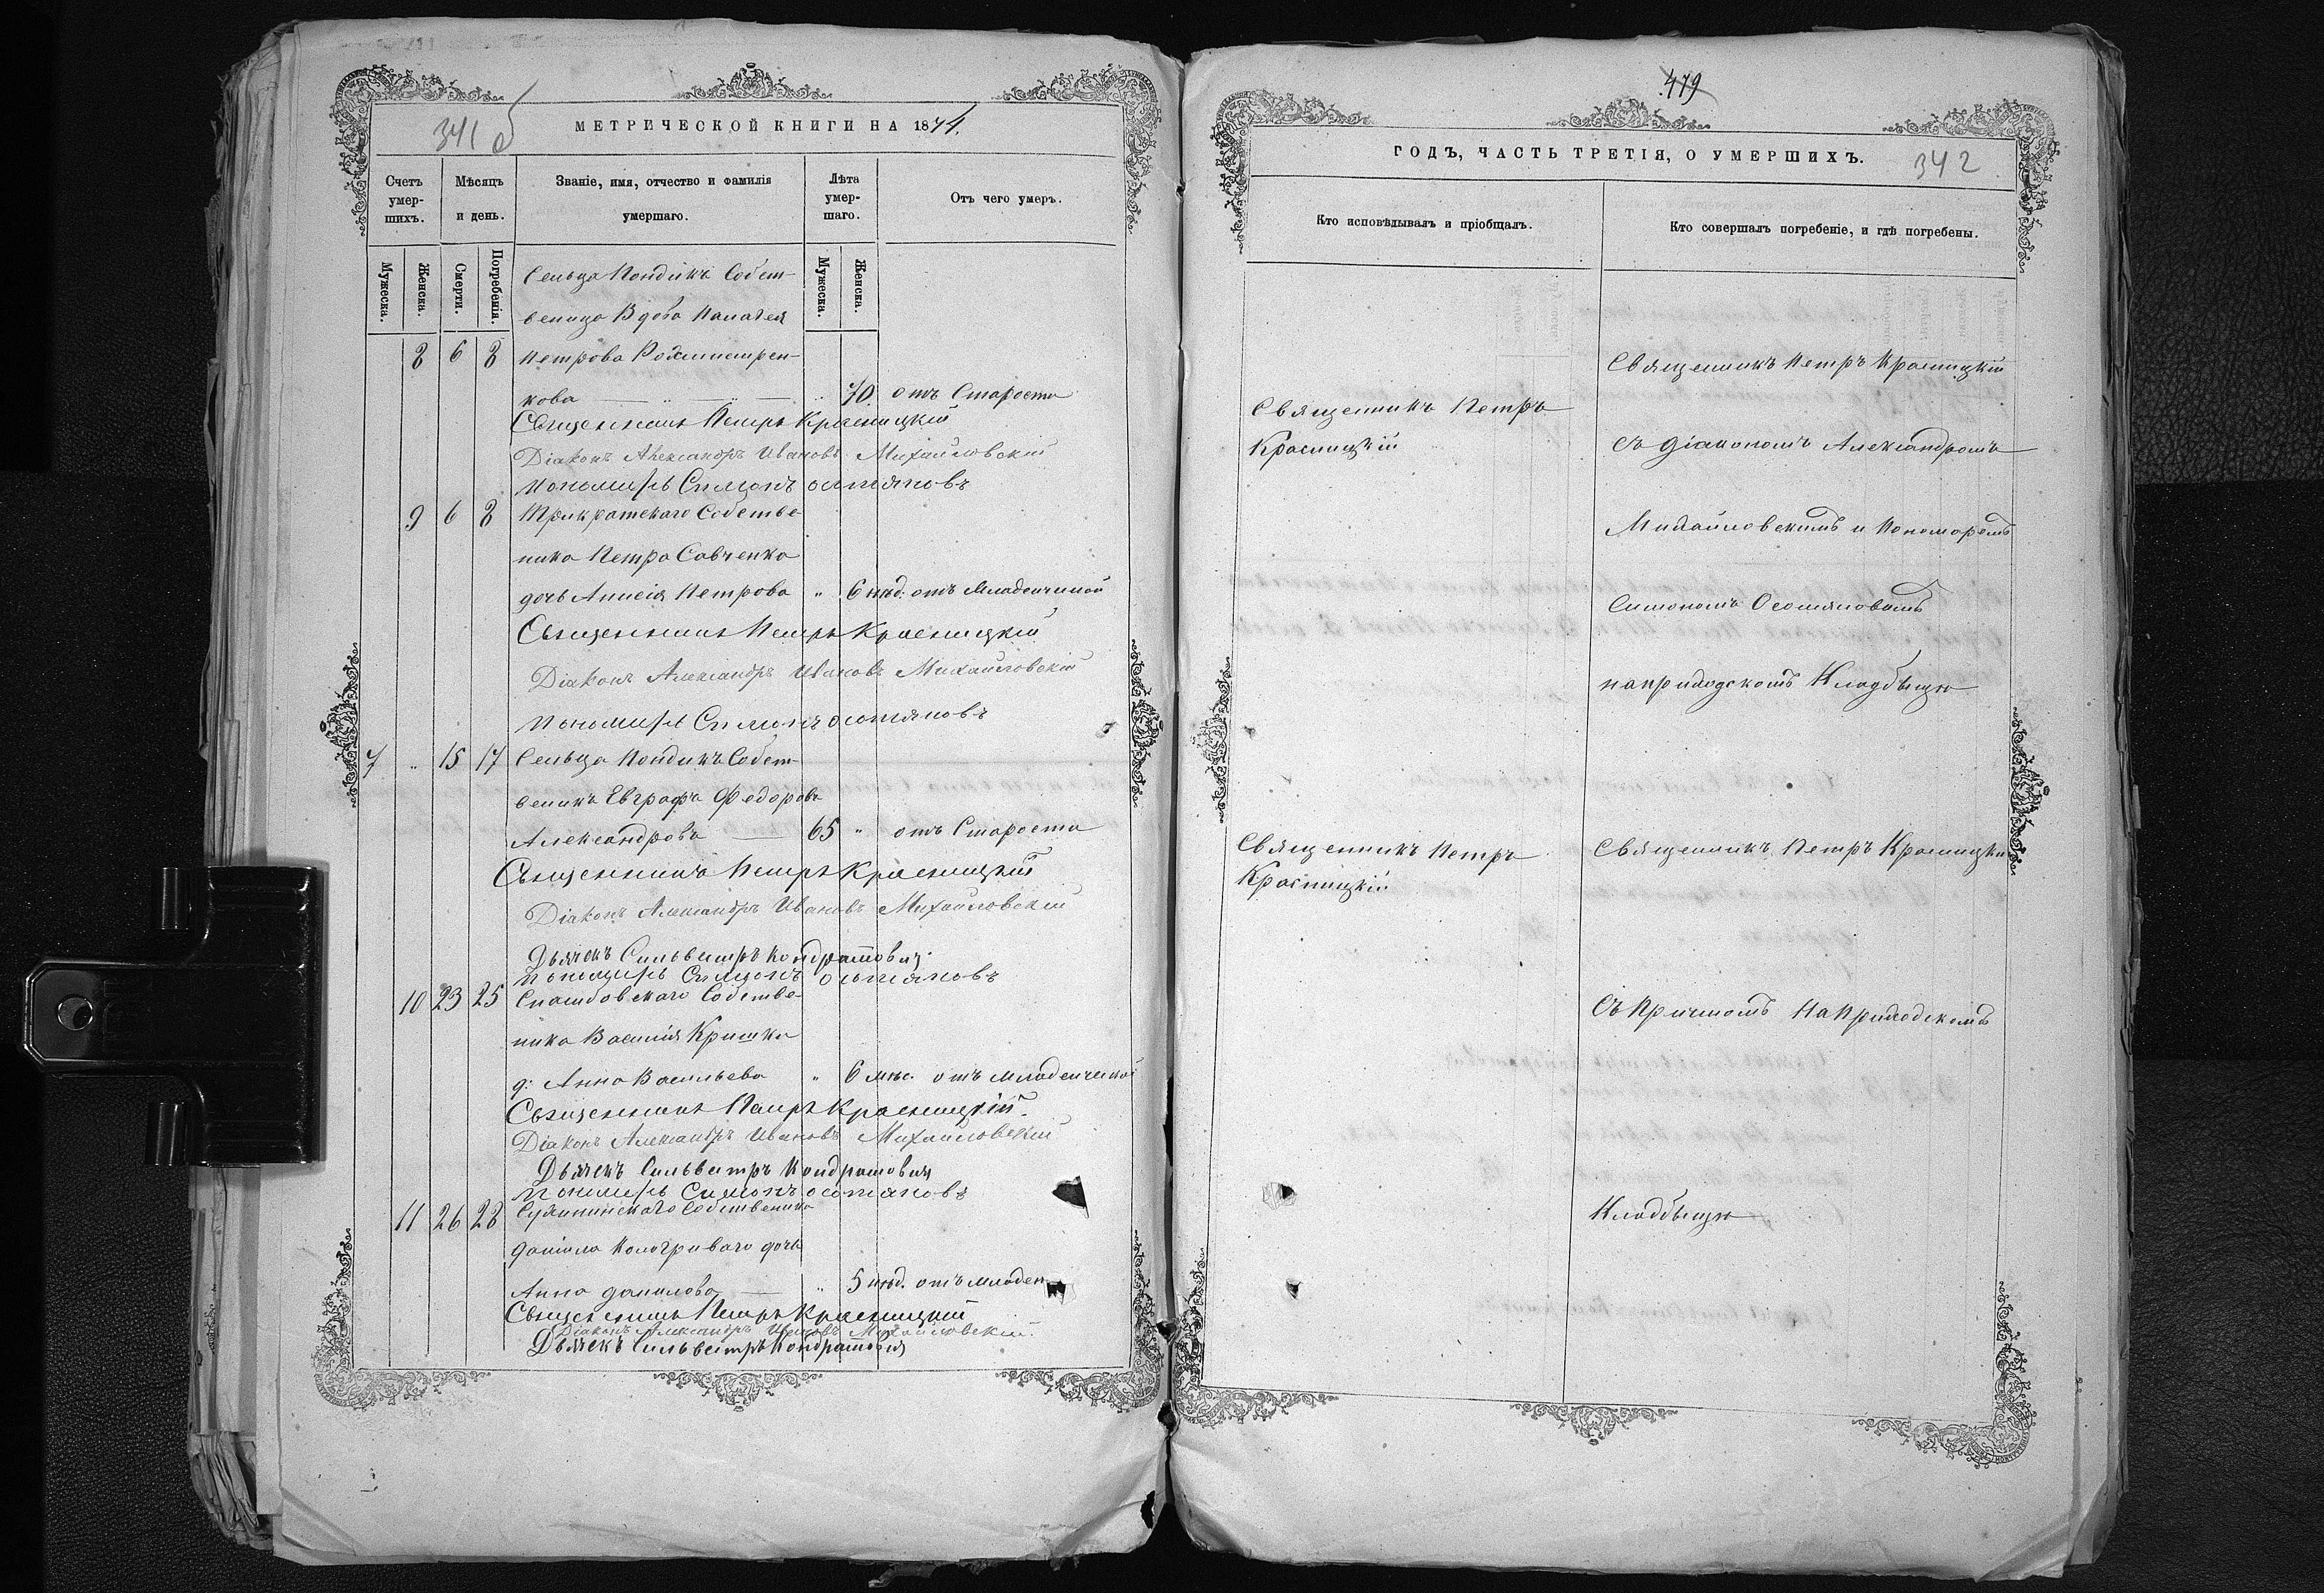 341 об
МЕТРИЧЕСКОЙ КНИГИ НА 1874.
Счетъ умер-шихъ.
Мѣсяцъ и день.
Званіе, имя, отчество и фамилія умершаго.
Лѣта умер-шаго.
Отъ чего умеръ.
Мужеска.
Женска.
Смерти.
Погребенія.
Мужеска.
Женска.
Сельца Кондикъ Собст-
веница Вдова Палагея
8 6 8 Петрова
кова 70 отъ Старости
Священникъ Петръ Красницкій
Діаконъ Александръ Ивановъ Михайловскій
Пономарь Симонъ
9 6 8 Трикратскаго Собстве-
ника Петра Савченка
дочь Анисія Петрова " 6 нед: отъ Младенчиной
Священникъ Петръ Красницкій
Діаконъ Александръ Ивановъ Михайловскій
Пономарь Симонъ
7 " 15 17 Сельца Кондикъ Собст-
веникъ Евграфъ Федоровъ
Александровъ 65 " отъ Старости
Священникъ Петръ Красницкій
Діаконъ Александръ Ивановъ Михайловскій
Дьячекъ Сильвестръ Кондратовичъ
Пономарь Симонъ
10 23 25 Собстве-
ника Василія Кришка
д: Анна Васильева " 6 мѣс. отъ младенческой
Священникъ Петръ Красницкій.
Діаконъ Александръ Ивановъ Михайловскій
Дьячекъ Сильвестръ Кондратовичъ
Пономарь Симонъ
11 26 28 Собственика
Даніила дочь
Анна Данилова " 5 нед. отъ младен
Священникъ Петръ Красницкій
Діаконъ Александръ Ивановъ Михайловскій.
Дьячекъ Сильвестръ Кондратовичъ
479
ГОДЪ, ЧАСТЬ ТРЕТІЯ, О УМЕРШИХЪ.
342
Кто исповѣдывалъ и пріобщалъ.
Кто совершалъ погребеніе, и гдѣ погребены.
Священникъ Петръ
Красницкій
Священникъ Петръ
Красницкій
Священникъ Петръ Красницкій
съ Діакономъ Александромъ
Михайловскимъ и Пономоремъ
Симономъ
наприходскомъ Кладбищи
Священникъ Петръ Красницкій
Съ Причтомъ На Приходскомъ
Кладбищи